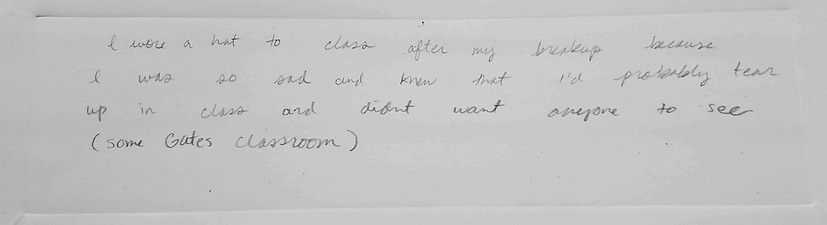 I wore a hat to class after my breakup because
I was so sad and knew that I'd probably tear
up in class and didnt want anyone to see
(some Gates classroom)